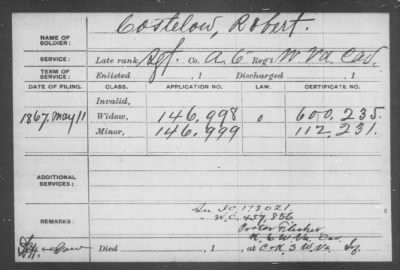 NAME OF SOLDIER: Costelow, Robert.
SERVICE: Late rank Sgt. Co. A. 6 Reg't W Va. Cav.
TERM OF SERVICE: Enlisted , 1 Discharged , 1
DATE OF FILING. CLASS. APPLICATION NO. LAW. CERTIFICATE NO.
Invalid,
1867. May 11 Widow, 146.998 0 600.235.
Minor, 146.999 112.231.
ADDITIONAL SERVICES:
See I C. 173021.
W.C. 457.856
REMARKS: Fletcher
K. 6 W Va. Cav.
Died , 1 , at C & K. 3 W Va.